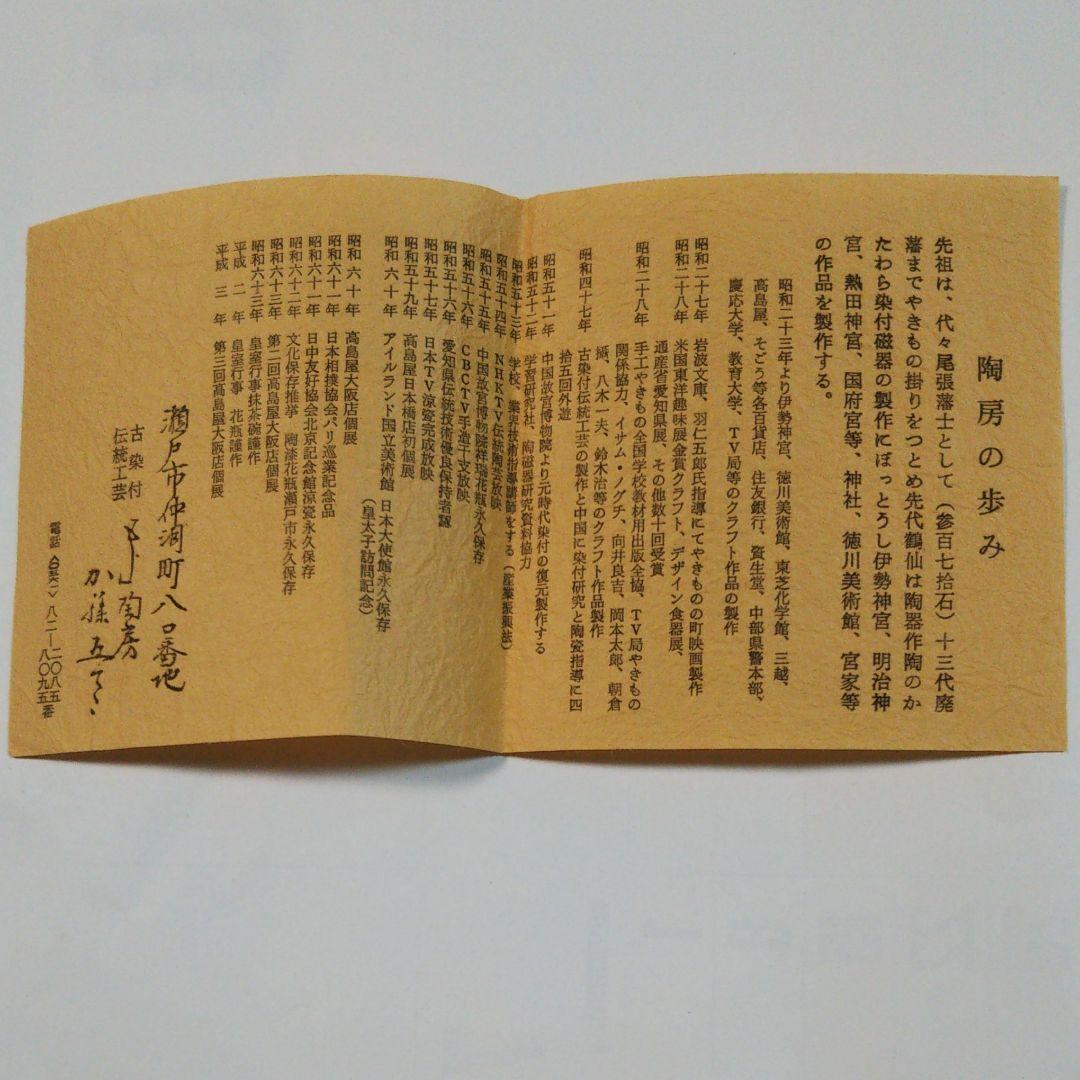 陶房の歩み
先祖は、代々尾張藩士として(参百七拾石)十三代廃
藩までやきもの掛りをつとめ先代鶴仙は陶器作陶のか
たわら染付磁器の製作にぼっとうし伊勢神宮、明治神
宮、熱田神宮、国府宮等、神社、徳川美術館、宮家等
の作品を製作する。
昭和二十三年より伊勢神宮、徳川美術館、東芝化学館、三越、
高島屋、そごう等各百貨店、住友銀行、資生堂、中部県警本部、
慶応大学、教育大学、TV局等のクラフト作品の製作
昭和二十七年 岩波文庫、羽仁五郎氏指導にてやきものの町映画製作
昭和二十八年 米国東洋趣味展金賞クラフト、デザイン食器展、
通産省愛知県展、その他数十回受賞
昭和二十八年 手工やきものの全国学校教材用出版全協、TV局やきもの
関係協力、イサム・ノグチ、向井良吉、岡本太郎、朝倉
摂、八木一夫、鈴木治等のクラフト作品製作
昭和四十七年 古染付伝統工芸の製作と中国に染付研究と陶瓷指導に四
拾五回外遊
昭和五十一年 中国故宮博物院より元時代染付の復元製作する
昭和五十二年 学習研究社、陶磁器研究資料協力
昭和五十三年 学校、業界技術指導講師をする(産業振興法)
昭和五十四年 NHKTV伝統陶芸放映
昭和五十五年 中国故宮博物院祥瑞花瓶永久保存
昭和五十六年 CBCTV手造干支放映
昭和五十六年 愛知県伝統技術優良保持者認
昭和五十七年 日本TV涼瓷完成放映
昭和五十九年 高島屋日本橋店初個展
昭和六十年 アイルランド国立美術館 日本大使館永久保存
(皇太子訪問記念)
昭和六十年 高島屋大阪店個展
昭和六十一年 日本相撲協会パリ巡業記念品
昭和六十一年 日中友好協会北京記念館涼瓷永久保存
昭和六十二年 文化保存推挙 陶漆花瓶瀬戸市永久保存
昭和六十三年 第二回高島屋大阪店個展
昭和六十三年 皇室行事抹茶碗謹作
平成二年 皇室行事 花瓶謹作
平成三年 第三回高島屋大阪店個展
瀬戸市仲洞町八〇番地
古染付
伝統工芸
陶房
電話 八二―二〇八五
八〇九五番